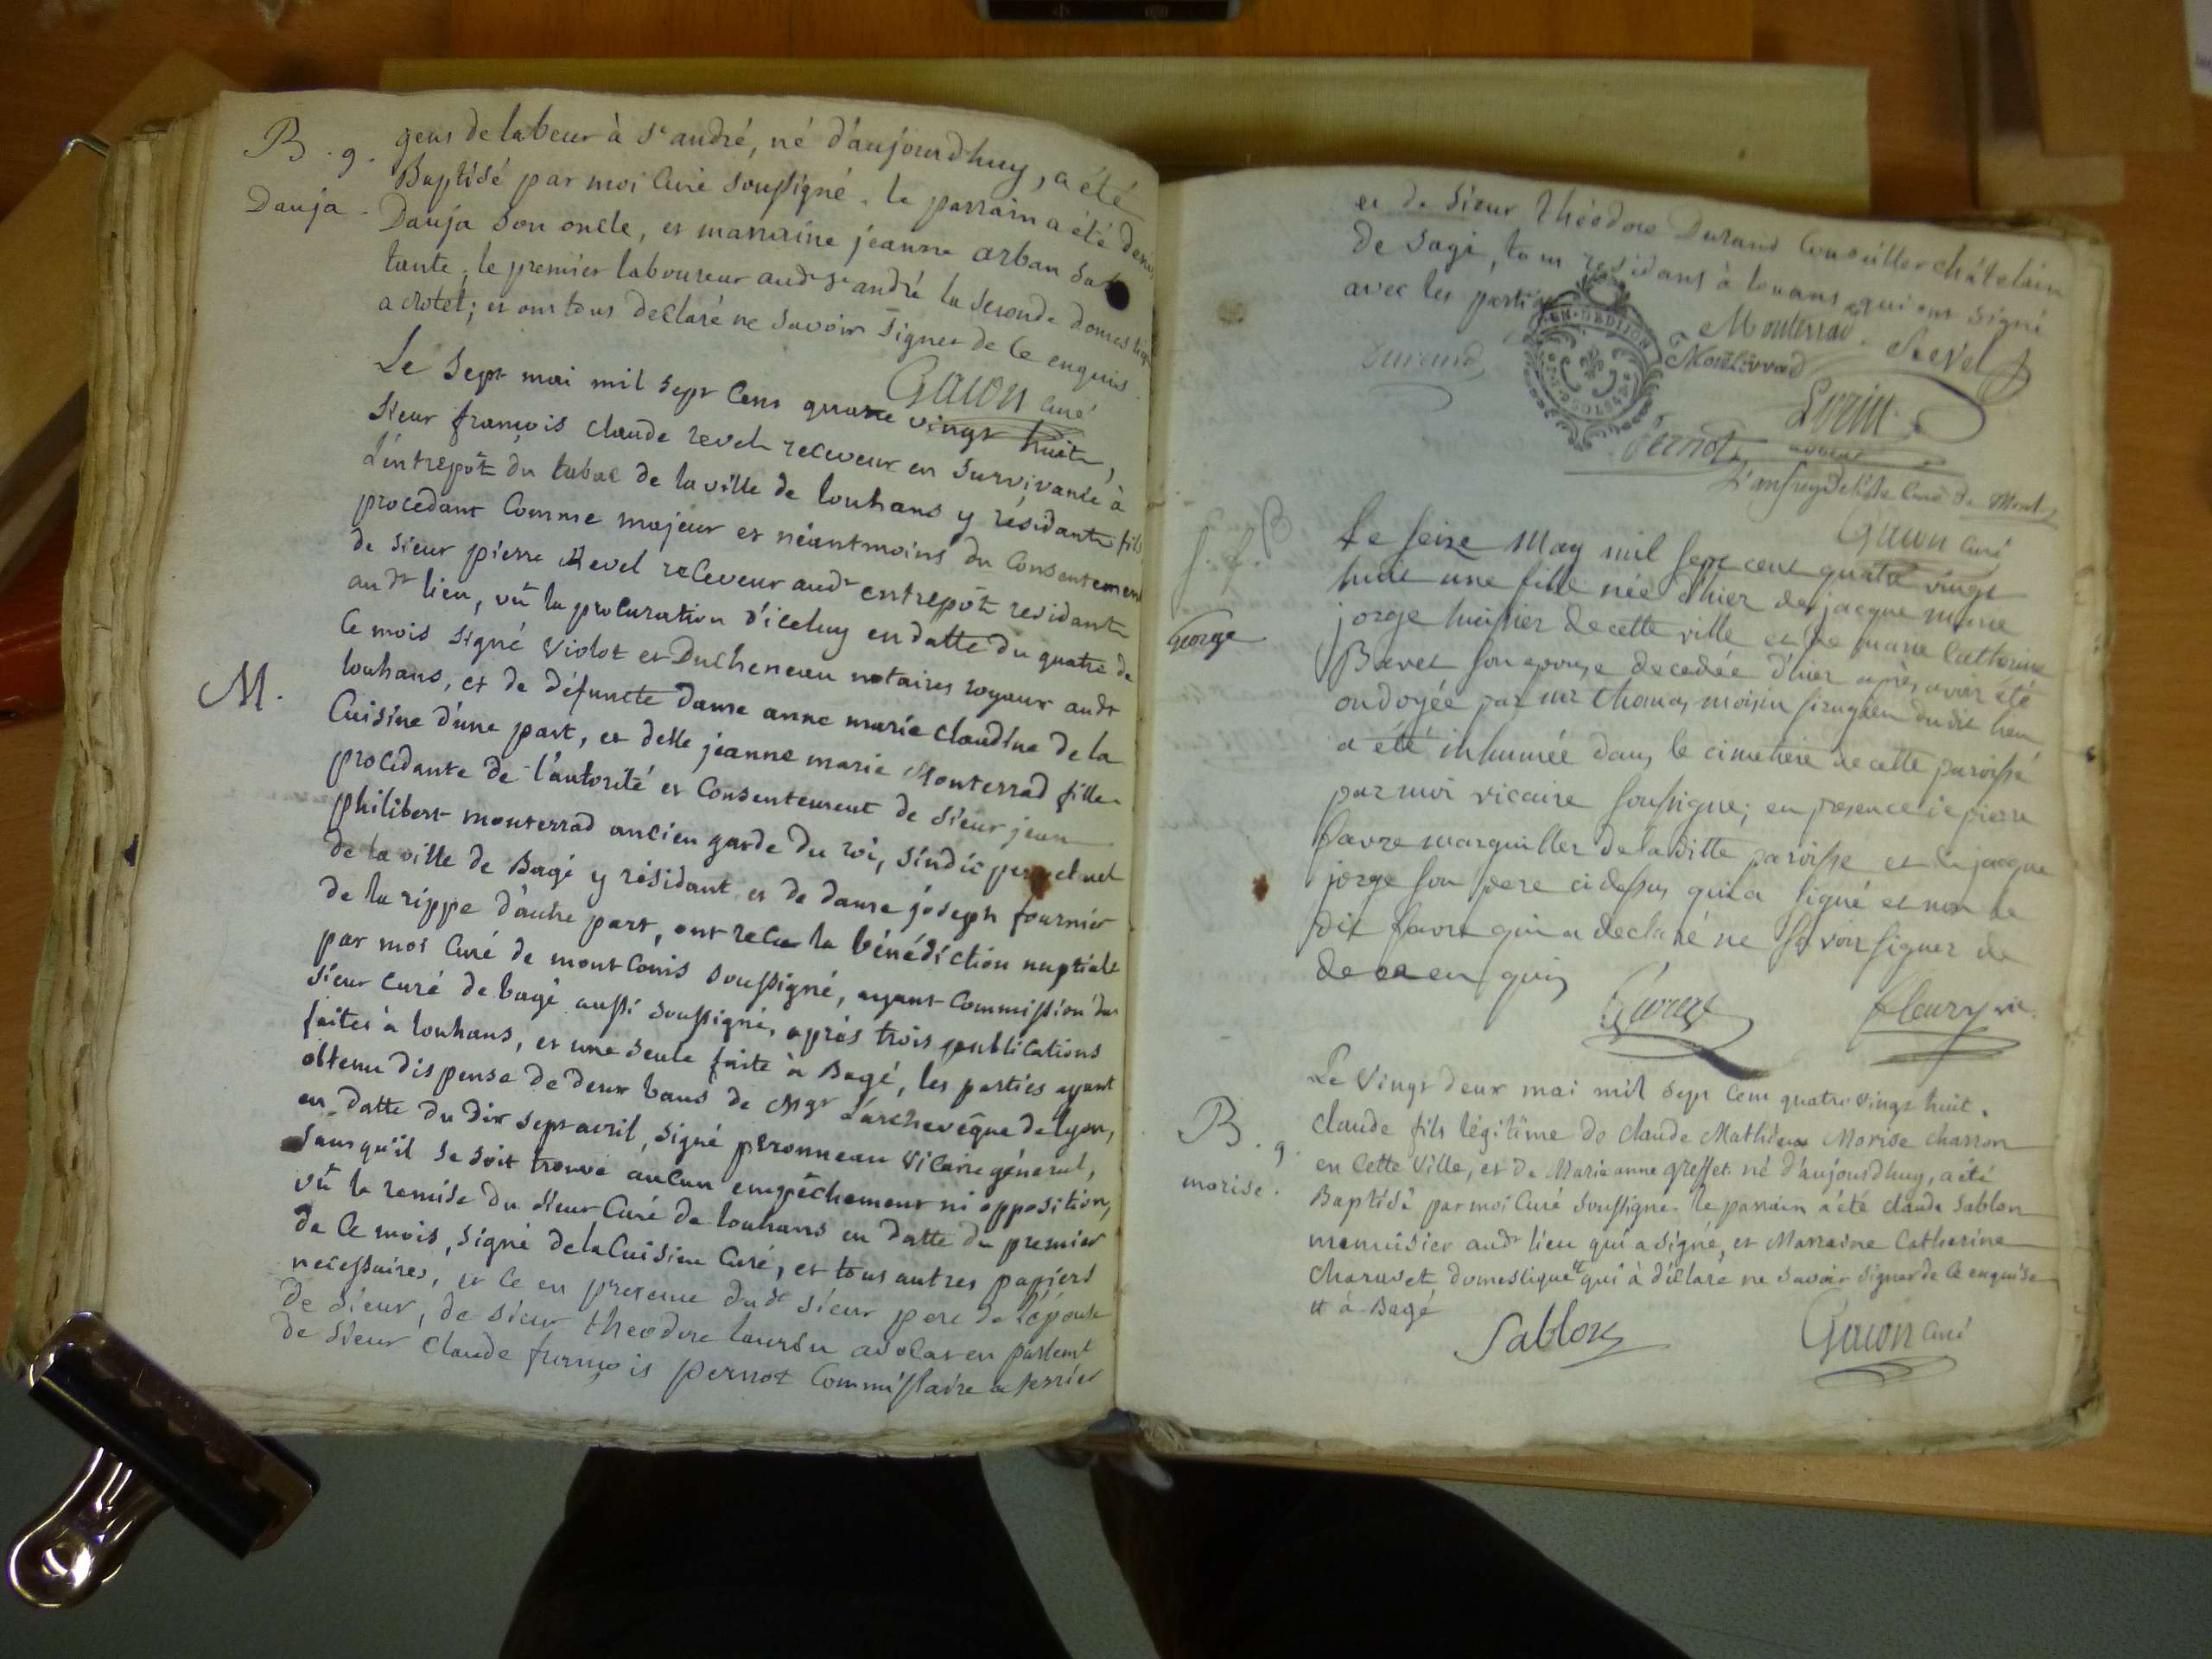 B. g.
Dauja.
gens de labeur à St andré, né d'aujourdhuy, a été
Baptisé par moi Curé soussigné. le parrain a été denis
Dauja son oncle, et marraine jeanne arban sa
tante, le premier laboureur audt St andré la seconde domestique
a crotel; et ont tous declaré ne savoir signer de ce enquis.
Gacon curé
M.
Le sept mai mil sept cent quatre vingt huit,
sieur françois claude revel receveur en survivance à
L'entrepôt du tabac de la ville de louhans y résidant fils
procédant Comme majeur et néantmoins du Consentement
de sieur pierre Revel receveur audt entrepôt residant
audt lieu, vû la procuration d'iceluy en datte du quatre de
Ce mois signé violot et Ducheneau notaires royaux audt
louhans, et de défuncte dame anne marie claudine de la
Cuisine d'une part, et delle jeanne marie Monterrad fille
procédante de l'autorité et Consentement de sieur jean
philibert monterrad ancien garde du roi, sindic perpetuel
de la ville de Bagé y résidant et de dame joseph fournier
de la rippe d'autre part, ont recu la bénédiction nuptiale
par moi Curé de mont Conis soussigné, ayant Commission du
sieur Curé de bagé aussi soussigné, après trois publications
faites à louhans, et une seule faite à Bagé, les parties ayant
obtenu dispense de deux bans de Mgr L'archevêque de lyon,
en datte du dix sept avril, signé péronneau vicaire général,
sans qu'il se soit trouvé aucun empêchement ni opposition,
vû la remise du sieur Curé de louhans en datte du premier
de Ce mois, signé de la Cuisine Curé, et tous autres papiers
necessaires, et ce en presence dudt sieur pere de l'épouse
de sieur, de sieur theodore avocat en parlemt
de sieur Claude françois pernot Commissaire a terrier
et de sieur théodore Durand Conseiller châtelain
de sagi, tous residans à louans qui ont signé
avec les parties
Monterrad. Revel
Durand Monterrad
Lorin
avocat
Pernot
Curé de Mont
Gacon curé
George
Le seize May mil sept cent quatre vingt
huit une fille née d'hier de jacque marie
jorge huissier de cette ville et de marie Catherine
Bavet son epouse decedée d'hier après avoir été
ondoyée par mr thomas moisin dudit lieu
a été inhumée dans le cimetiere de cette paroisse
par moi vicaire soussigné; en presence de pierre
favre marguiller de laditte paroisse et de jacque
jorge son pere ci dessus qui a signé et non le
dit favre qui a declaré ne savoir signer de
de ce en quis
George fleury vic.
B. g.
morise.
Le Vingt deux mai mil sept Cent quatre vingt huit.
claude fils légitime de claude Mathieu Morise charron
en Cette Ville, et de Marie anne greffet né d'aujourdhuy, a été
Baptisé par moi Curé soussigné. le parrain a été claude sablon
menuisier audt lieu qui a signé, et Marraine Catherine
Charvet domestique # qui à déclaré ne savoir signer de Ce enquise
# à Bagé
Sablon Gacon Curé